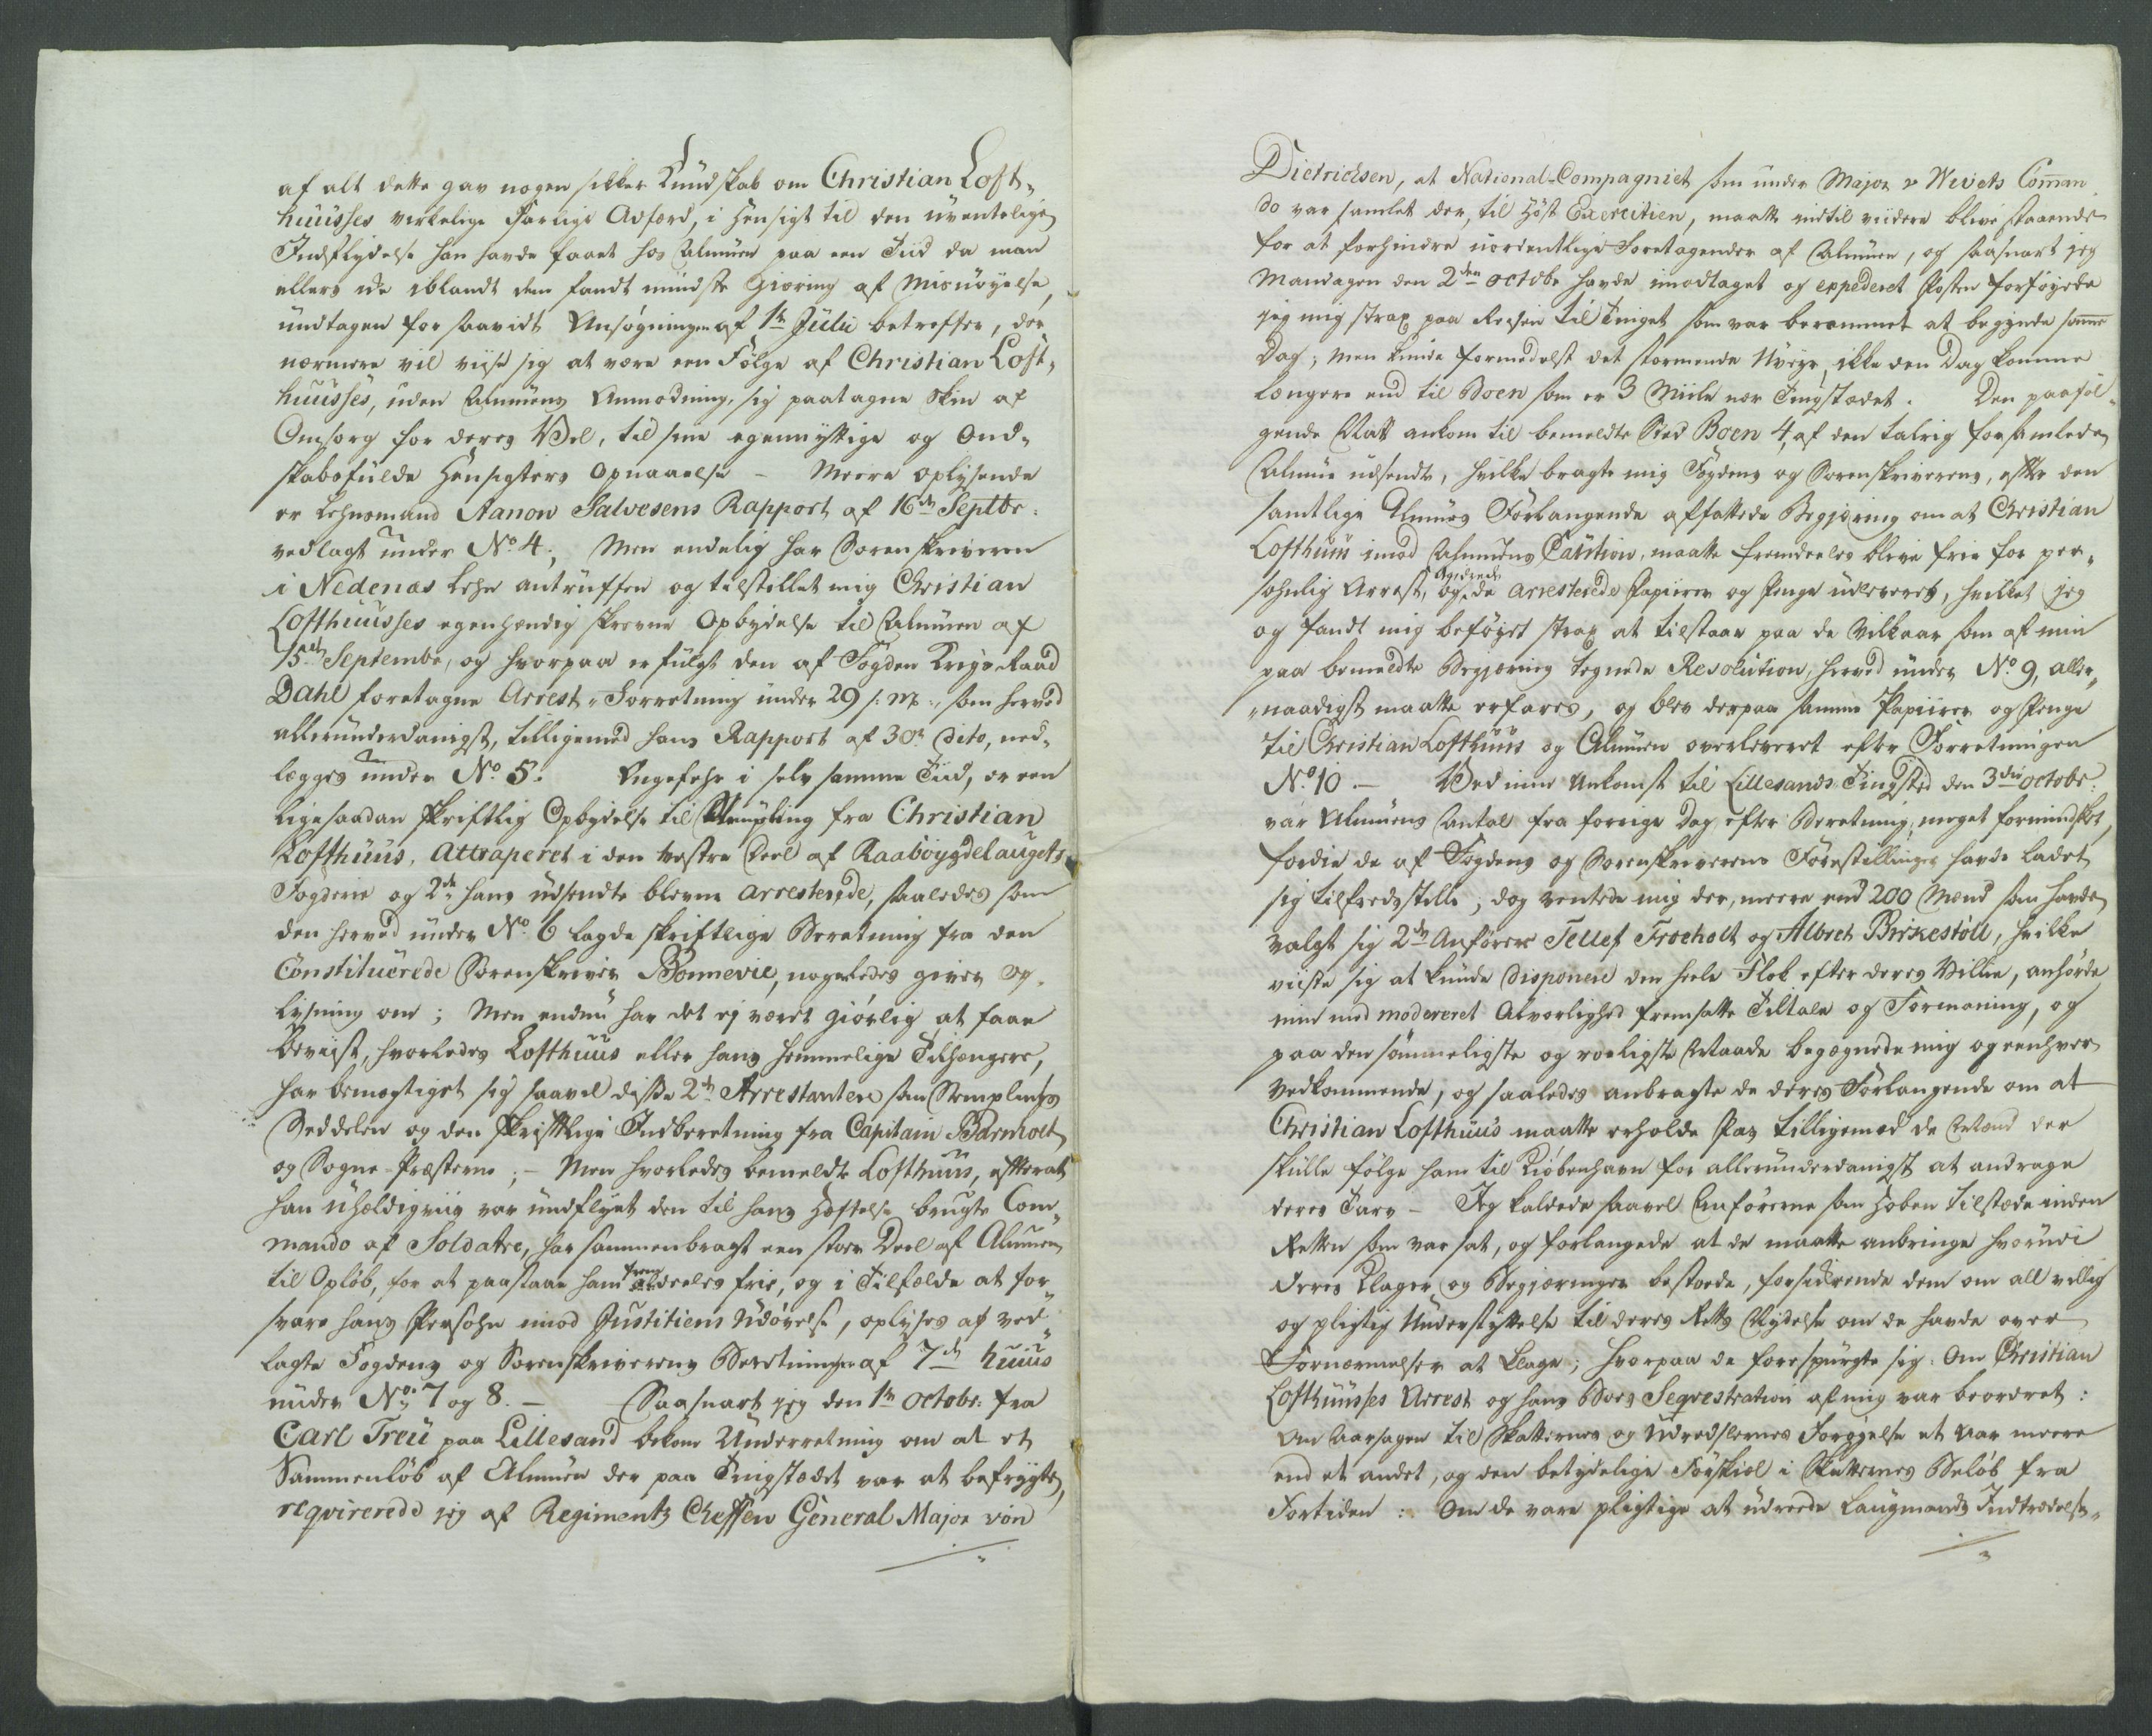 af alt dette gav nogen sikker Kundskab om Christian Loft„
huuses virkelige farlige Adfærd, i Hensigt til den uventelige
Indflydelse han havde faaet hos Almuen paa een Tiid da man
ellers ei iblandt dem fandt mindste Giæring af Misnøyelse,
undtagen for saavidt Ansøgningen af 1ste Julii betreffer, der
nærmere vil viise sig at være een Følge af Christian Loft„
huuses, uden Almuens Anmodning, sig paatagne Skin af
Omsorg for deres Vel, til sine egennyttige og Ond„
skabsfulde Hensigters Opnaaelse – Meere oplysende
er Lehnsmand Aanon Salvesens Rapport af 16de Septbr:
vedlagt under No 4; Men endelig har Sorenskriveren
i Nedenæs Lehn antruffen og tilstillet mig Christian
Lofthuuses egenhændig skrevne Opbydelse til Almuen af
15de Septembr, og hvorpaa er fulgt den af Fogden Krigs Raad
Dahl foretagne Arrest„Forretning under 29 s: M:, som herved
allerunderdanigst, tilligemed hans Rapport af 30te dito, ned„
lægges under No 5. Ungefehr i selv samme Tiid, er een
ligesaadan skriftlig Opbydelse til Stempling fra Christian
Lofthuus, Attraperet i den Vestre Deel af Raabøygdelaugets
Fogderie og 2de hans udsendte blevne arresterede, saaledes som
den herved under No 6 lagde skriftlige Beretning fra den
Constituerede Sorenskriver Bonnevie, nogenledes giver Op„
lysning om; Men endnu har det ej været giørlig at faae
beviist, hvorledes Lofthuus eller hans hemmelige Tilhængere,
har bemægtiget sig saavel disse 2de Arrestantere som Stemplings
Seddelen og den skriftlige Indberetning fra Capitain Barnholt
og Sogne-Præsterne; – Men hvorledes bemeldte Lofthuus, efterat
han uheldigviis var undflyet den til hans Hæftelse brugte Com„
mando af Soldatre, har sammenbragt een stoer Deel af Almuen
til Opløb, for at paastaae ham fremdeeles frie, og i Tilfælde at for„
svare hans Persohn imod Justitiens Udøvelse, oplyses af ved„
lagte Fogdens og Sorenskriverens Beretninger af 7de huius
under No: 7 og 8. – Saasnart jeg den 1te Octobr: fra
Carl Treu paa Lillesand bekom Underretning om at et
Sammenløb af Almuen der paa Tingstædet var at befrygte,
reqvirerede jeg af Regiments Cheffen General Major von
Dietrichsen, at National-Compagniet som under Major v Wivets Coman„
do var samlet der, til Høst Exercitien, maatte indtil viidere blive staaende
for at forhindre uordentlige Foretagender af Almuen, og saasnart jeg
Mandagen den 2den Octobr havde imodtaget og expederet Posten forføyede
jeg mig strax paa Reisen til Tinget som var berammet at begynde samme
Dag; men kunde formedelst det stormende Uveyr, ikke den Dag komme
længere end til Boen som er 3 Miile nær Tingstædet. Den paaføl„
gende Natt ankom til bemeldte Sted Boen 4, af den talrig forsamlede
Almue udsendte, hvilke bragte mig Fogdens og Sorenskriverens, efter den
samtlige Almues Forlangende affattede Begjæring om at Christian
Lofthuus imod Almuens Caution, maatte fremdeeles blive frie for per„
sohnlig Arrest, og de arresterede Papiirer og Penge udleveret, hvilket jeg
og fandt mig beføyet strax at tilstaae paa de Vilkaar som af min
paa bemeldte Begjæring tegnede Resolution, herved under No 9, aller„
„naadigst maatte erfares, og blev derpaa samme Papiirer og Penge
til Christian Lofthuus og Almuen overleveret efter Forretningen
No 10 – Ved min Ankomst til Lillesands Tingsted den 3die Octobr:
var Almuens Antal fra forrige Dag efter Beretning, meget formindsket,
fordie de af Fogdens og Sorenskriverens Forestillinger havde ladet
sig tilfredsstille; dog ventede mig der, meere end 200 Mænd som havde
valgt sig 2de Anførere Tellef Froeholt og Albret Birkestöll, hvilke
viiste sig at kunde disponere den heele Flok efter deres Villie, anhørde
min med modereret Alvorlighed fremsatte Tiltale og Formaning, og
paa den sømmeligste og roeligste Maade begegnede mig og eenhver
Vedkommende, og saaledes anbragte de deres Forlangende om at
Christian Lofthuus maatte erholde Pas tilligemed de Mænd der
skulle følge ham til Kiøbenhavn for allerunderdanigst at andrage
deres Tarv – Jeg kaldede saavel Anførerne som Hoben tilstæde inden
Retten som var sat, og forlangede at de maatte anbringe hvorudi
deres Klager og Begjæringer bestoede, forsikrende dem om all villig
og pligtig Understyttelse til deres Retts Nydelse om de havde over
Fornærmelser at klage; hvorpaa de forespurgte sig: Om Christian
Lofthuuses Arrest og hans Boes Seqvestration af mig var beordret:
Om Aarsagen til Skatternes og Udredslernes Forøgelse et Aar meere
end et andet, og den betydelige Forskiel i Skatternes Beløb fra
Fortiden: Om de vare pligtige at udrede Laugmands Indtrædelse„